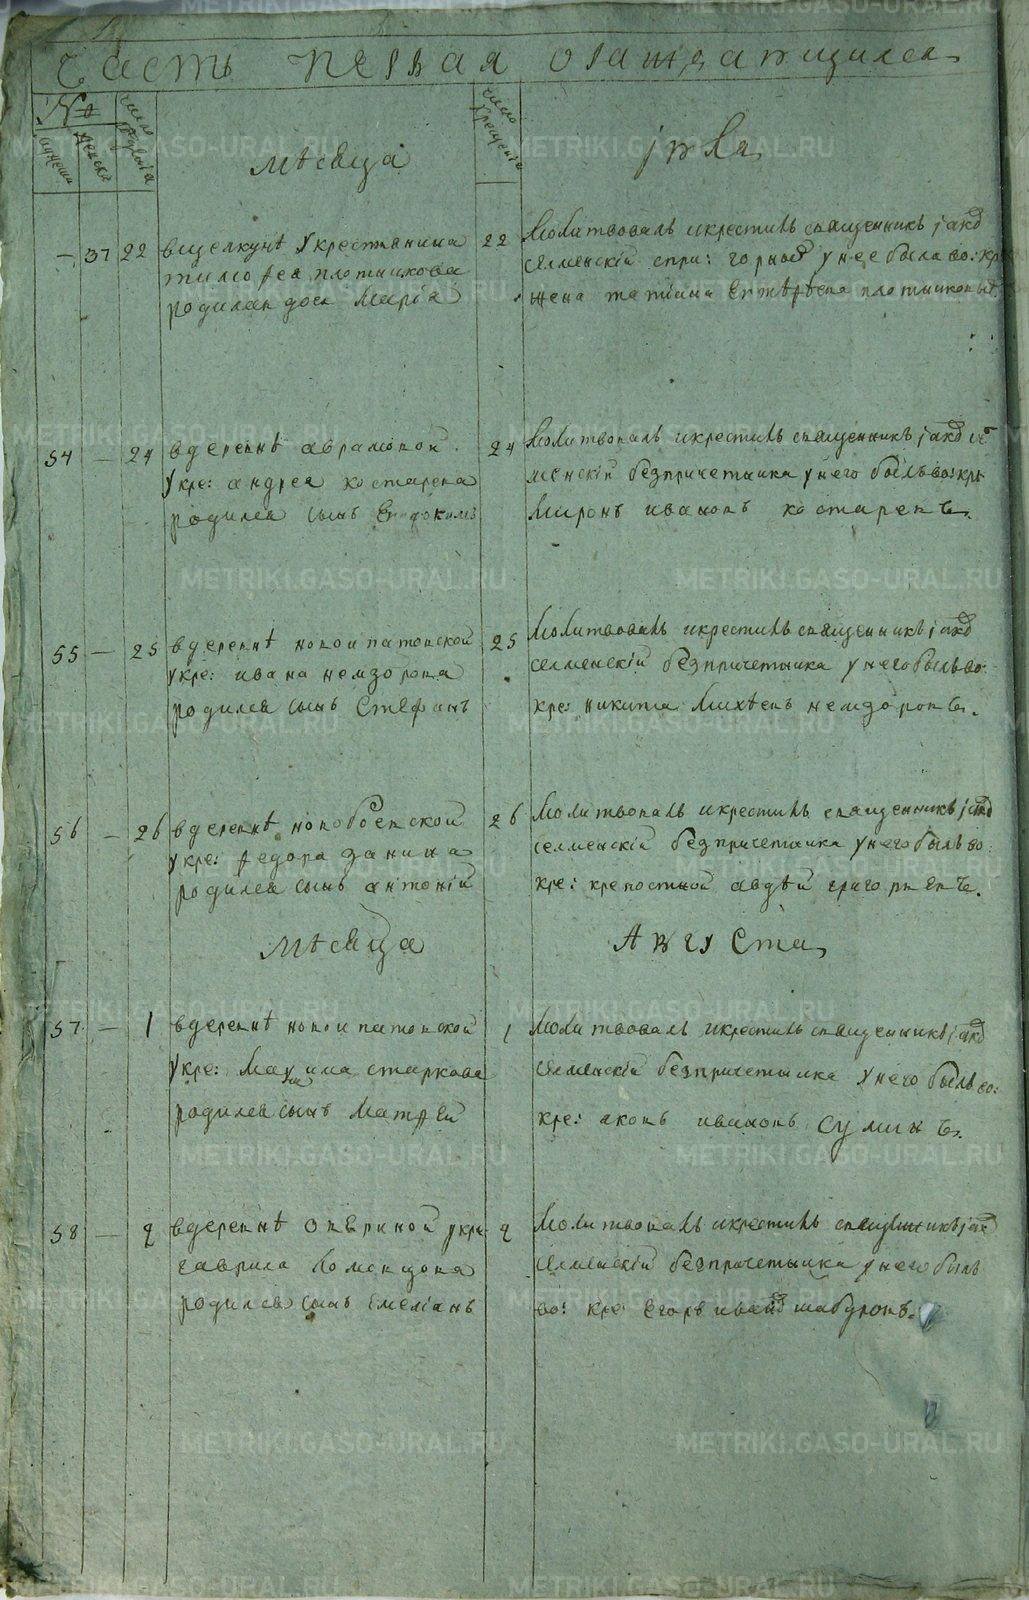 часть первая о раждающихся
№
мужеска
женска
число рождения
мѣсяца
число крещения
іюля
— 37 22 вщелкунѣ укрестьянина
тимофея плотникова
родилась дочь Марія
22 Молитвовалъ икрестилъ священникъ
селменскій спри: горной унее была во: кр
жена татіана плотникова
54 — 24 вдеревнѣ аврамовой
укре: андрея костарева
родился сынъ Евдокимъ
24 Молитвовалъ икрестилъ священникъ
менскій безпричетника унего былъ во: кре
Миронъ ивановъ костаревъ.
55 — 25 вдеревнѣ новоипатовской
укре: ивана немзорова
родился сынъ Стефанъ
25 Молитвовалъ икрестилъ священникъ
селменскій безпричетника унего былъ во:
кре: никита Михѣевъ немзоровъ.
56 — 26 вдеревнѣ новобоевской
укре: федора занина
родился сынъ антоній
26 Молитвовалъ икрестилъ священникъ
селменскій безпричетника унего былъ во:
кре: крепостной авдѣй григорьевъ.
мѣсяца Августа
57 — 1 вдеревнѣ новоипатовской
укре: Максима старкова
родился сынъ Матфей
1 Молитвовалъ икрестилъ священникъ
селменскій безпричетника унего былъ во:
кре: яковъ ивановъ суминъ.
58 — 2 вдеревнѣ озериной укре:
гаврила Коменцова
родился сынъ Емеліанъ
2 Молитвовалъ икрестилъ священникъ
селменскій безпричетника унего былъ
во: кре: Егоръ шабуровъ.
METRIKI.GASO-URAL.RU